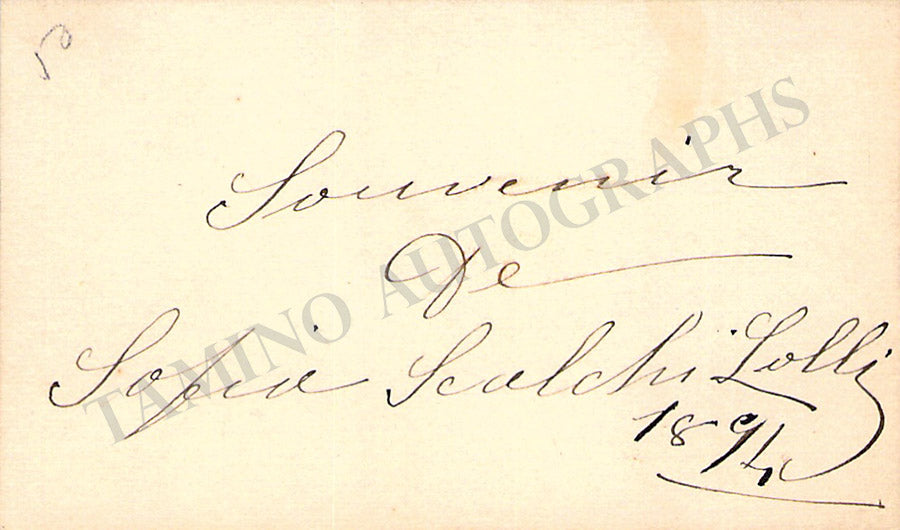 Souvenir
De
Sofia Scalchi Lolli
1894
TAMINO AUTOGRAPHS